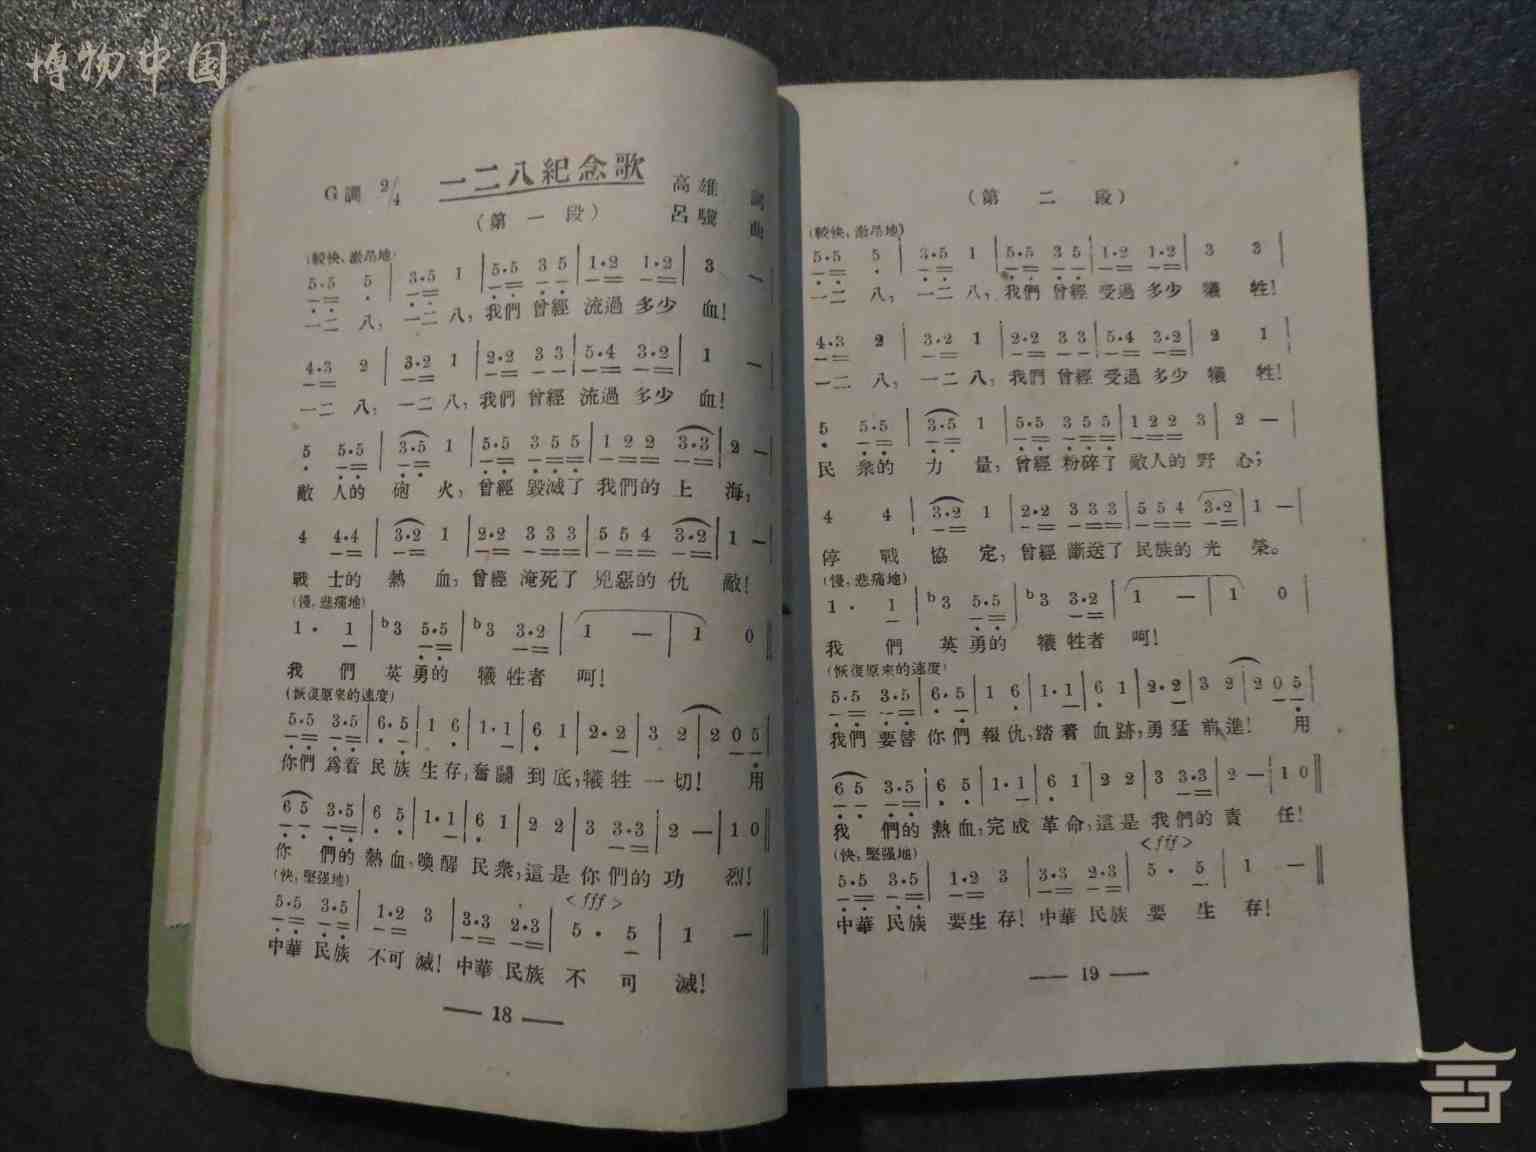 博物中国
一二八紀念歌
G調 2/4
高雄 詞
(第一段)
呂驥 曲
(較快,激昂地)
5·5 5 | 3·5 1 | 5·5 3 5 | 1·2 1·2 | 3 — |
一二 八, 一二 八, 我們 曾經 流過 多少 血!
4·3 2 | 3·2 1 | 2·2 3 3 | 5·4 3·2 | 1 — |
一二 八, 一二 八, 我們 曾經 流過 多少 血!
5 5·5 | 3·5 1 | 5·5 3 5 5 | 1 2 2 3·3 | 2 — |
敵 人的 砲 火, 曾經 毀滅了 我們的 上 海;
4 4·4 | 3·2 1 | 2·2 3 3 3 | 5 5 4 3·2 | 1 — |
戰 士的 熱 血, 曾經 淹死了 兇惡的 仇 敵!
(慢,悲痛地)
1 · 1 | b3 5·5 | b3 3·2 | 1 — | 1 0 ‖
我 們 英勇的 犧牲者 呵!
(恢復原來的速度)
5·5 3·5 | 6·5 | 1 6 | 1·1 | 6 1 | 2·2 | 3 2 | 2 0 5 |
你們 爲着 民族 生存,奮鬭 到底,犧牲 一切! 用
6 5 3·5 | 6 5 | 1·1 | 6 1 | 2 2 | 3 3·3 | 2 — | 1 0 ‖
你 們的 熱血,喚醒 民衆,這是 你們的 功 烈!
(快,堅强地)
<fff>
5·5 3·5 | 1·2 3 | 3·3 2·3 | 5 · 5 | 1 — ‖
中華 民族 不可 滅! 中華 民族 不 可 滅!
— 18 —
(第二段)
(較快,激昂地)
5·5 5 | 3·5 1 | 5·5 3 5 | 1·2 1·2 | 3 3 |
一二 八, 一二 八, 我們 曾經 受過 多少 犧 牲!
4·3 2 | 3·2 1 | 2·2 3 3 | 5·4 3·2 | 2 1 |
一二 八, 一二 八, 我們 曾經 受過 多少 犧 牲!
5 5·5 | 3·5 1 | 5·5 3 5 5 | 1 2 2 3 | 2 — |
民 衆的 力 量, 曾經 粉碎了 敵人的 野 心;
4 4 | 3·2 1 | 2·2 3 3 3 | 5 5 4 3·2 | 1 — |
停 戰 協 定, 曾經 斷送了 民族的 光 榮。
(慢,悲痛地)
1 · 1 | b3 5·5 | b3 3·2 | 1 — | 1 0 |
我 們 英勇的 犧牲者 呵!
(恢復原來的速度)
5·5 3·5 | 6·5 | 1 6 | 1·1 | 6 1 | 2·2 | 3 2 | 2 0 5 |
我們 要替 你們 報仇,踏着 血跡,勇猛 前進! 用
6 5 3·5 | 6 5 | 1·1 | 6 1 | 2 2 | 3 3·3 | 2 — | 1 0 ‖
我 們的 熱血,完成 革命,這是 我們的 責 任!
(快,堅强地)
<fff>
5·5 3·5 | 1·2 3 | 3·3 2·3 | 5 · 5 | 1 — ‖
中華 民族 要生 存! 中華 民族 要 生 存!
— 19 —